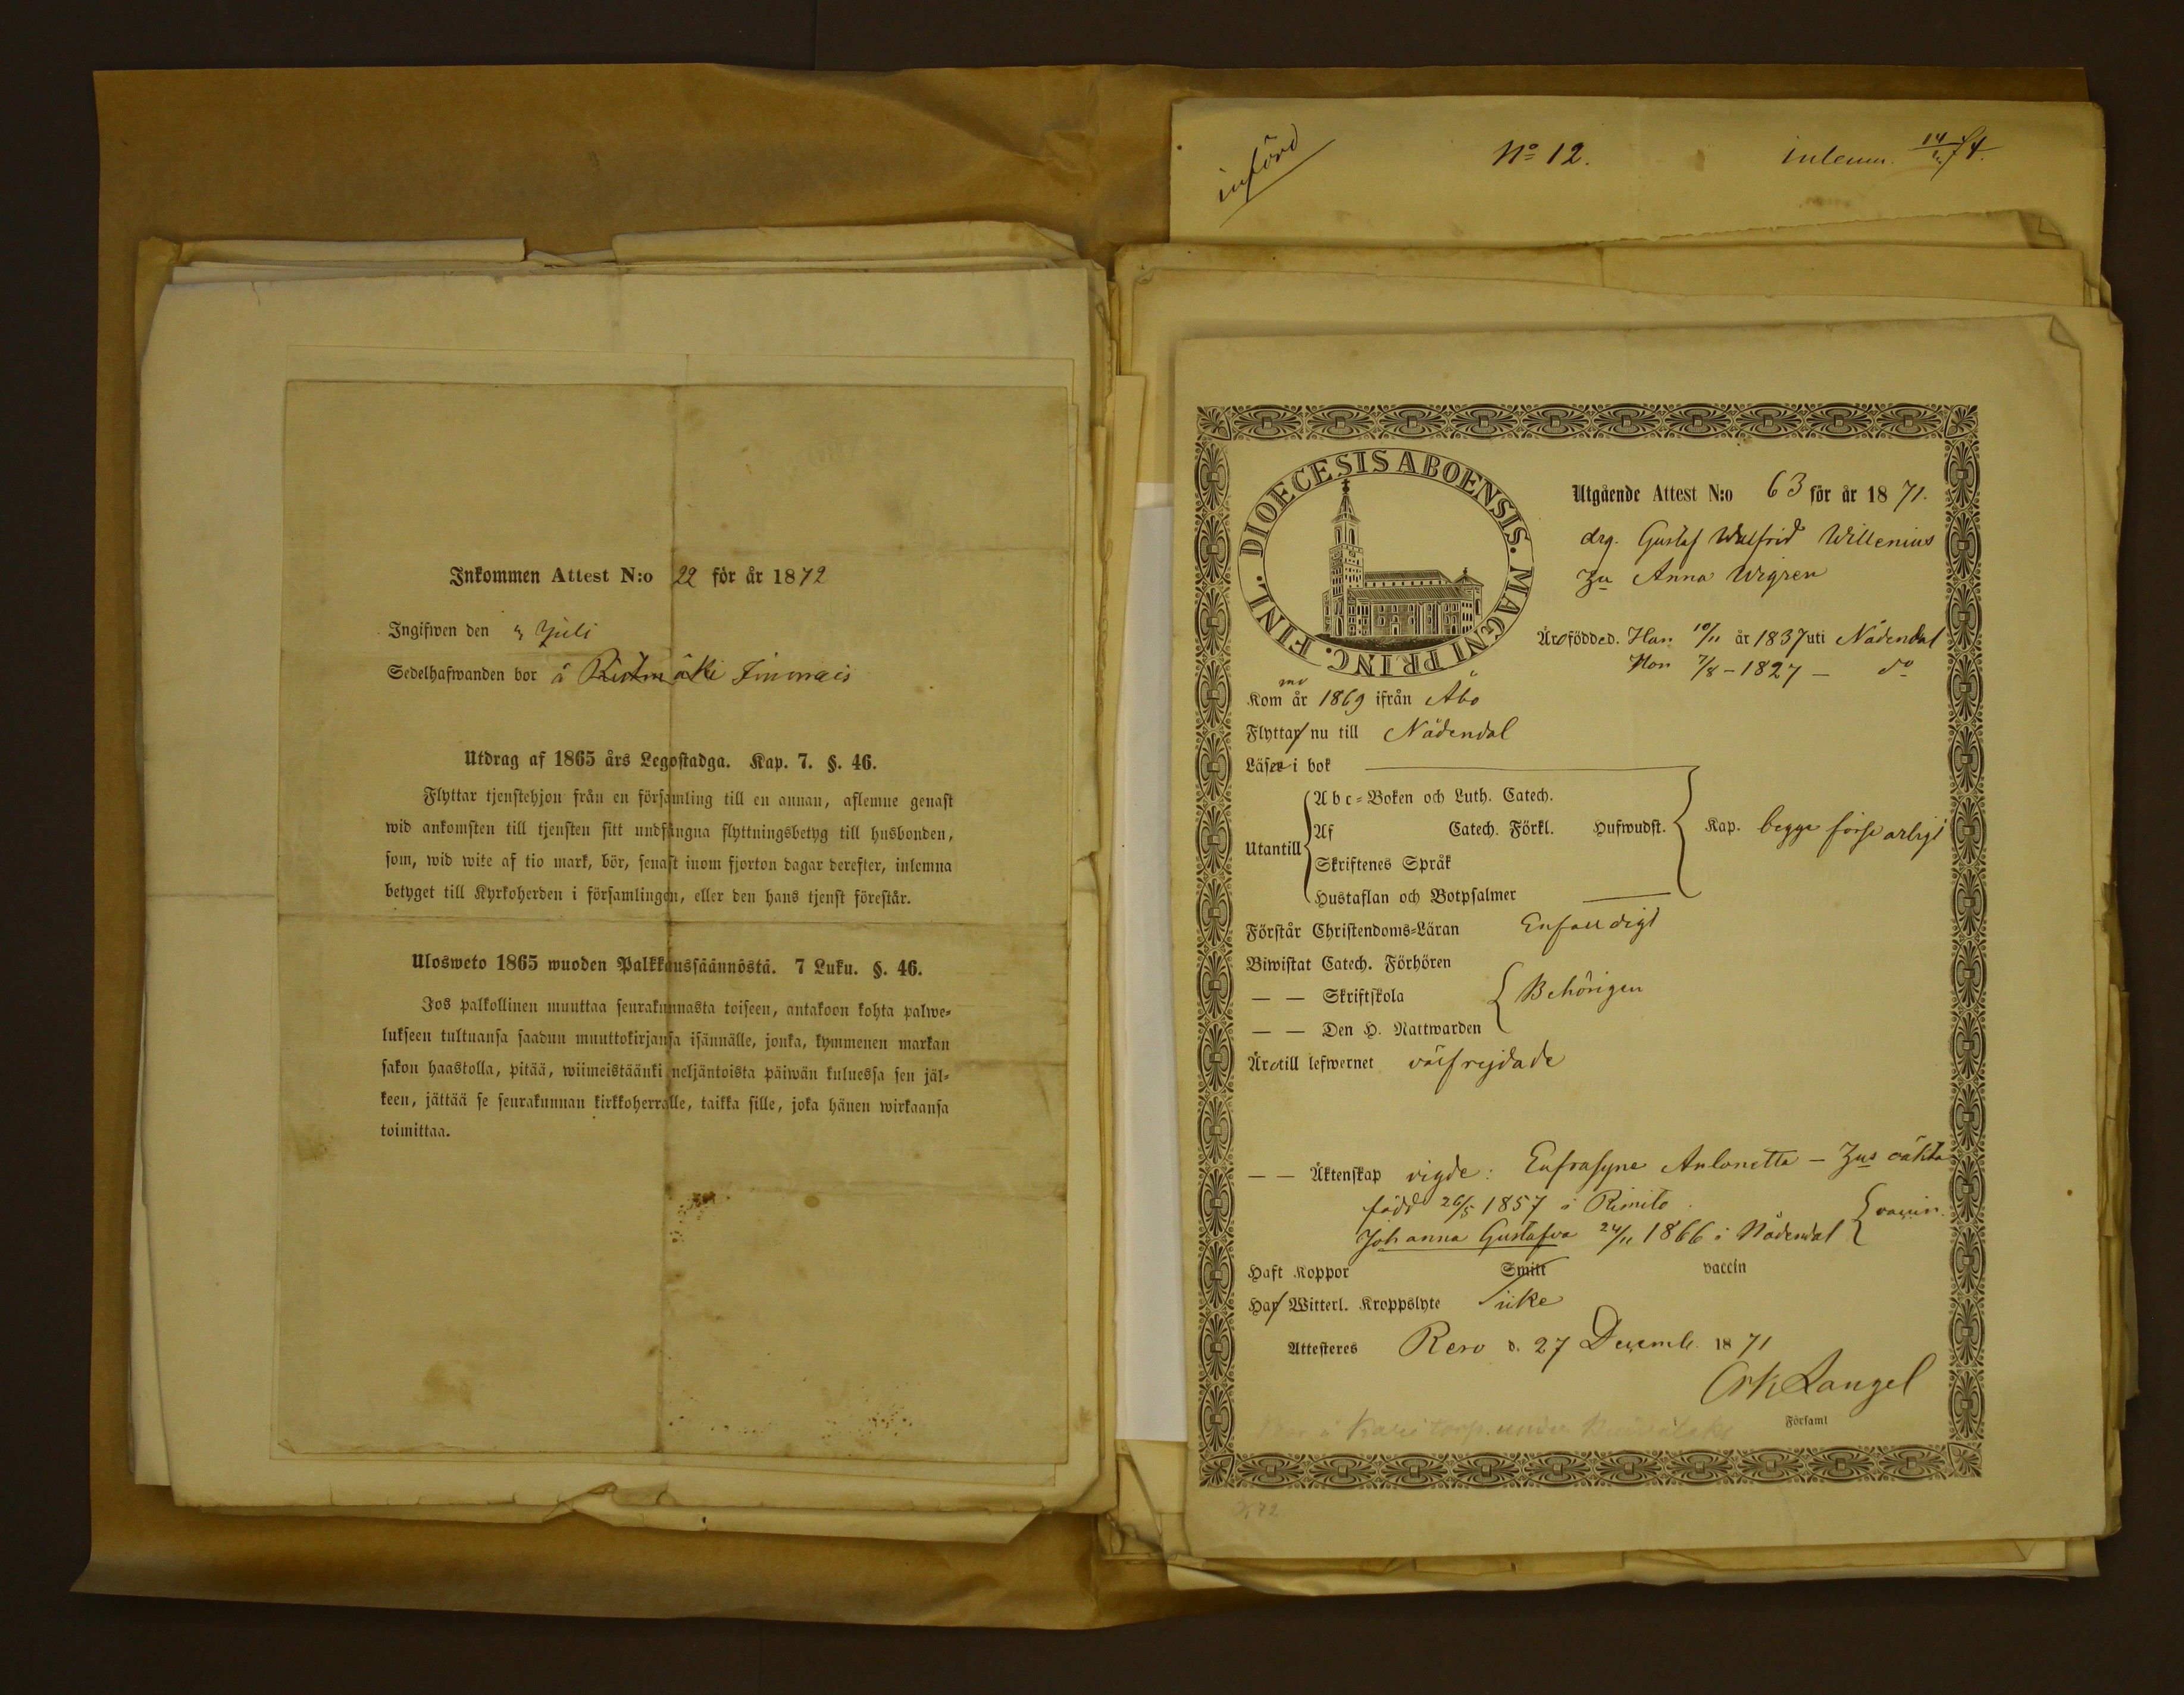 Inkommen Attest N:o 22 för år 1872
Ingifwen den 4 Juli
Sedelhafwanden bor å
Utdrag af 1865 års Legostadga. Kap. 7. §. 46.
Flyttar tjenstehjon från en församling till en annan, aflemne genast
wid ankomsten till tjensten sitt undfångna flyttningsbetyg till husbonden,
som, wid wite af tio mark, bör, senast inom fjorton dagar derefter, inlemna
betyget till Kyrkoherden i församlingen, eller den hans tjenst förestår.
Ulosweto 1865 wuoden Palkkaussäännöstä. 7 Luku. §. 46.
Jos palkollinen muuttaa seurakunnasta toiseen, antakoon kohta palwe=
lukseen tultuansa saadun muuttokirjansa isännälle, jonka, kymmenen markan
sakon haastolla, pitää, wiimeistäänki neljäntoista päiwän kuluessa sen jäl=
keen, jättää se seurakunnan kirkkoherralle, taikka sille, joka hänen wirkaansa
toimittaa.
införd
No 12.
inlemn.
DIOECESIS ABOENSIS. MAGNI PRINC. FINL.
Utgående Attest N:o 63 för år 1871.
drg. Gustaf Walfrid Willenius
Anna Wigren
Äro födde d. Han 10/11 år 1837 uti Nådendal
Hon 7/8 - 1827 - do
Kom år 1869 ifrån Åbo
Flytta nu till Nådendal
Läse i bok
Utantill
Abc=Boken och Luth. Catech.
Af Catech. Förkl. Hufwudst. Kap. begge förswarligt
Skriftenes Språk
Hustaflan och Botpsalmer
Förstår Christendoms=Läran Enfaldigt
Biwistat Catech. Förhören
— — Skriftskola Behörigen
— — Den H. Nattwarden
Äro till lefwernet välfrejdade
— — Äktenskap vigde: Eufrosyne Antonetta —
född 26/5 1857 i Rimito
Johanna Gustafva 24/11 1866 i Nådendal vaccin.
Haft Koppor Smitt vaccin
Ha Witterl. Kroppslyte icke
Attesteres Reso d. 27 Decemb. 1871
Langel
Församl